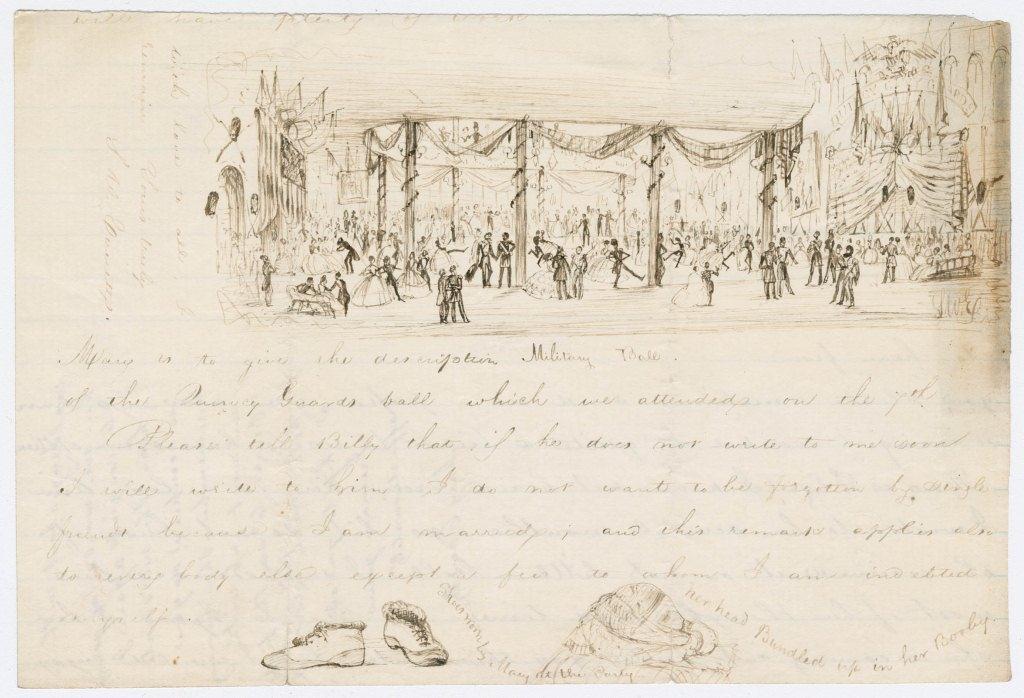 will have plenty of
with love to all I
remain Yours truly
Mary is to give the description Military Ball.
of the Quincy Guards ball which we attended on the 7th
Please tell Billy that if he does not write to me soon
I will write to him I do not want to be forgotten by single
friends because I am married; and this remark applies also
to every body else except a few to whom I am indebted
Mary at the Party
her head Bundled up in her